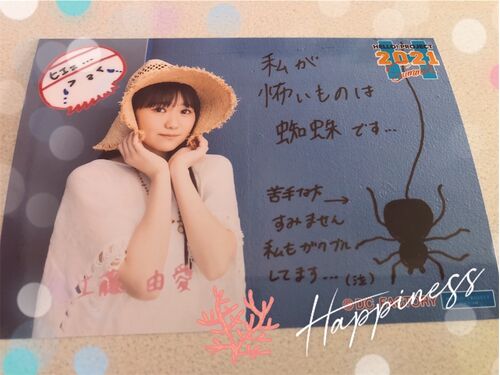 ヒエエ…
HELLO! PROJECT
2021
私が
怖いものは
蜘蛛です…
苦手な方→
すみません
私もガクブル
してます…(泣)
工藤 由愛
©DC FACTORY
Happiness